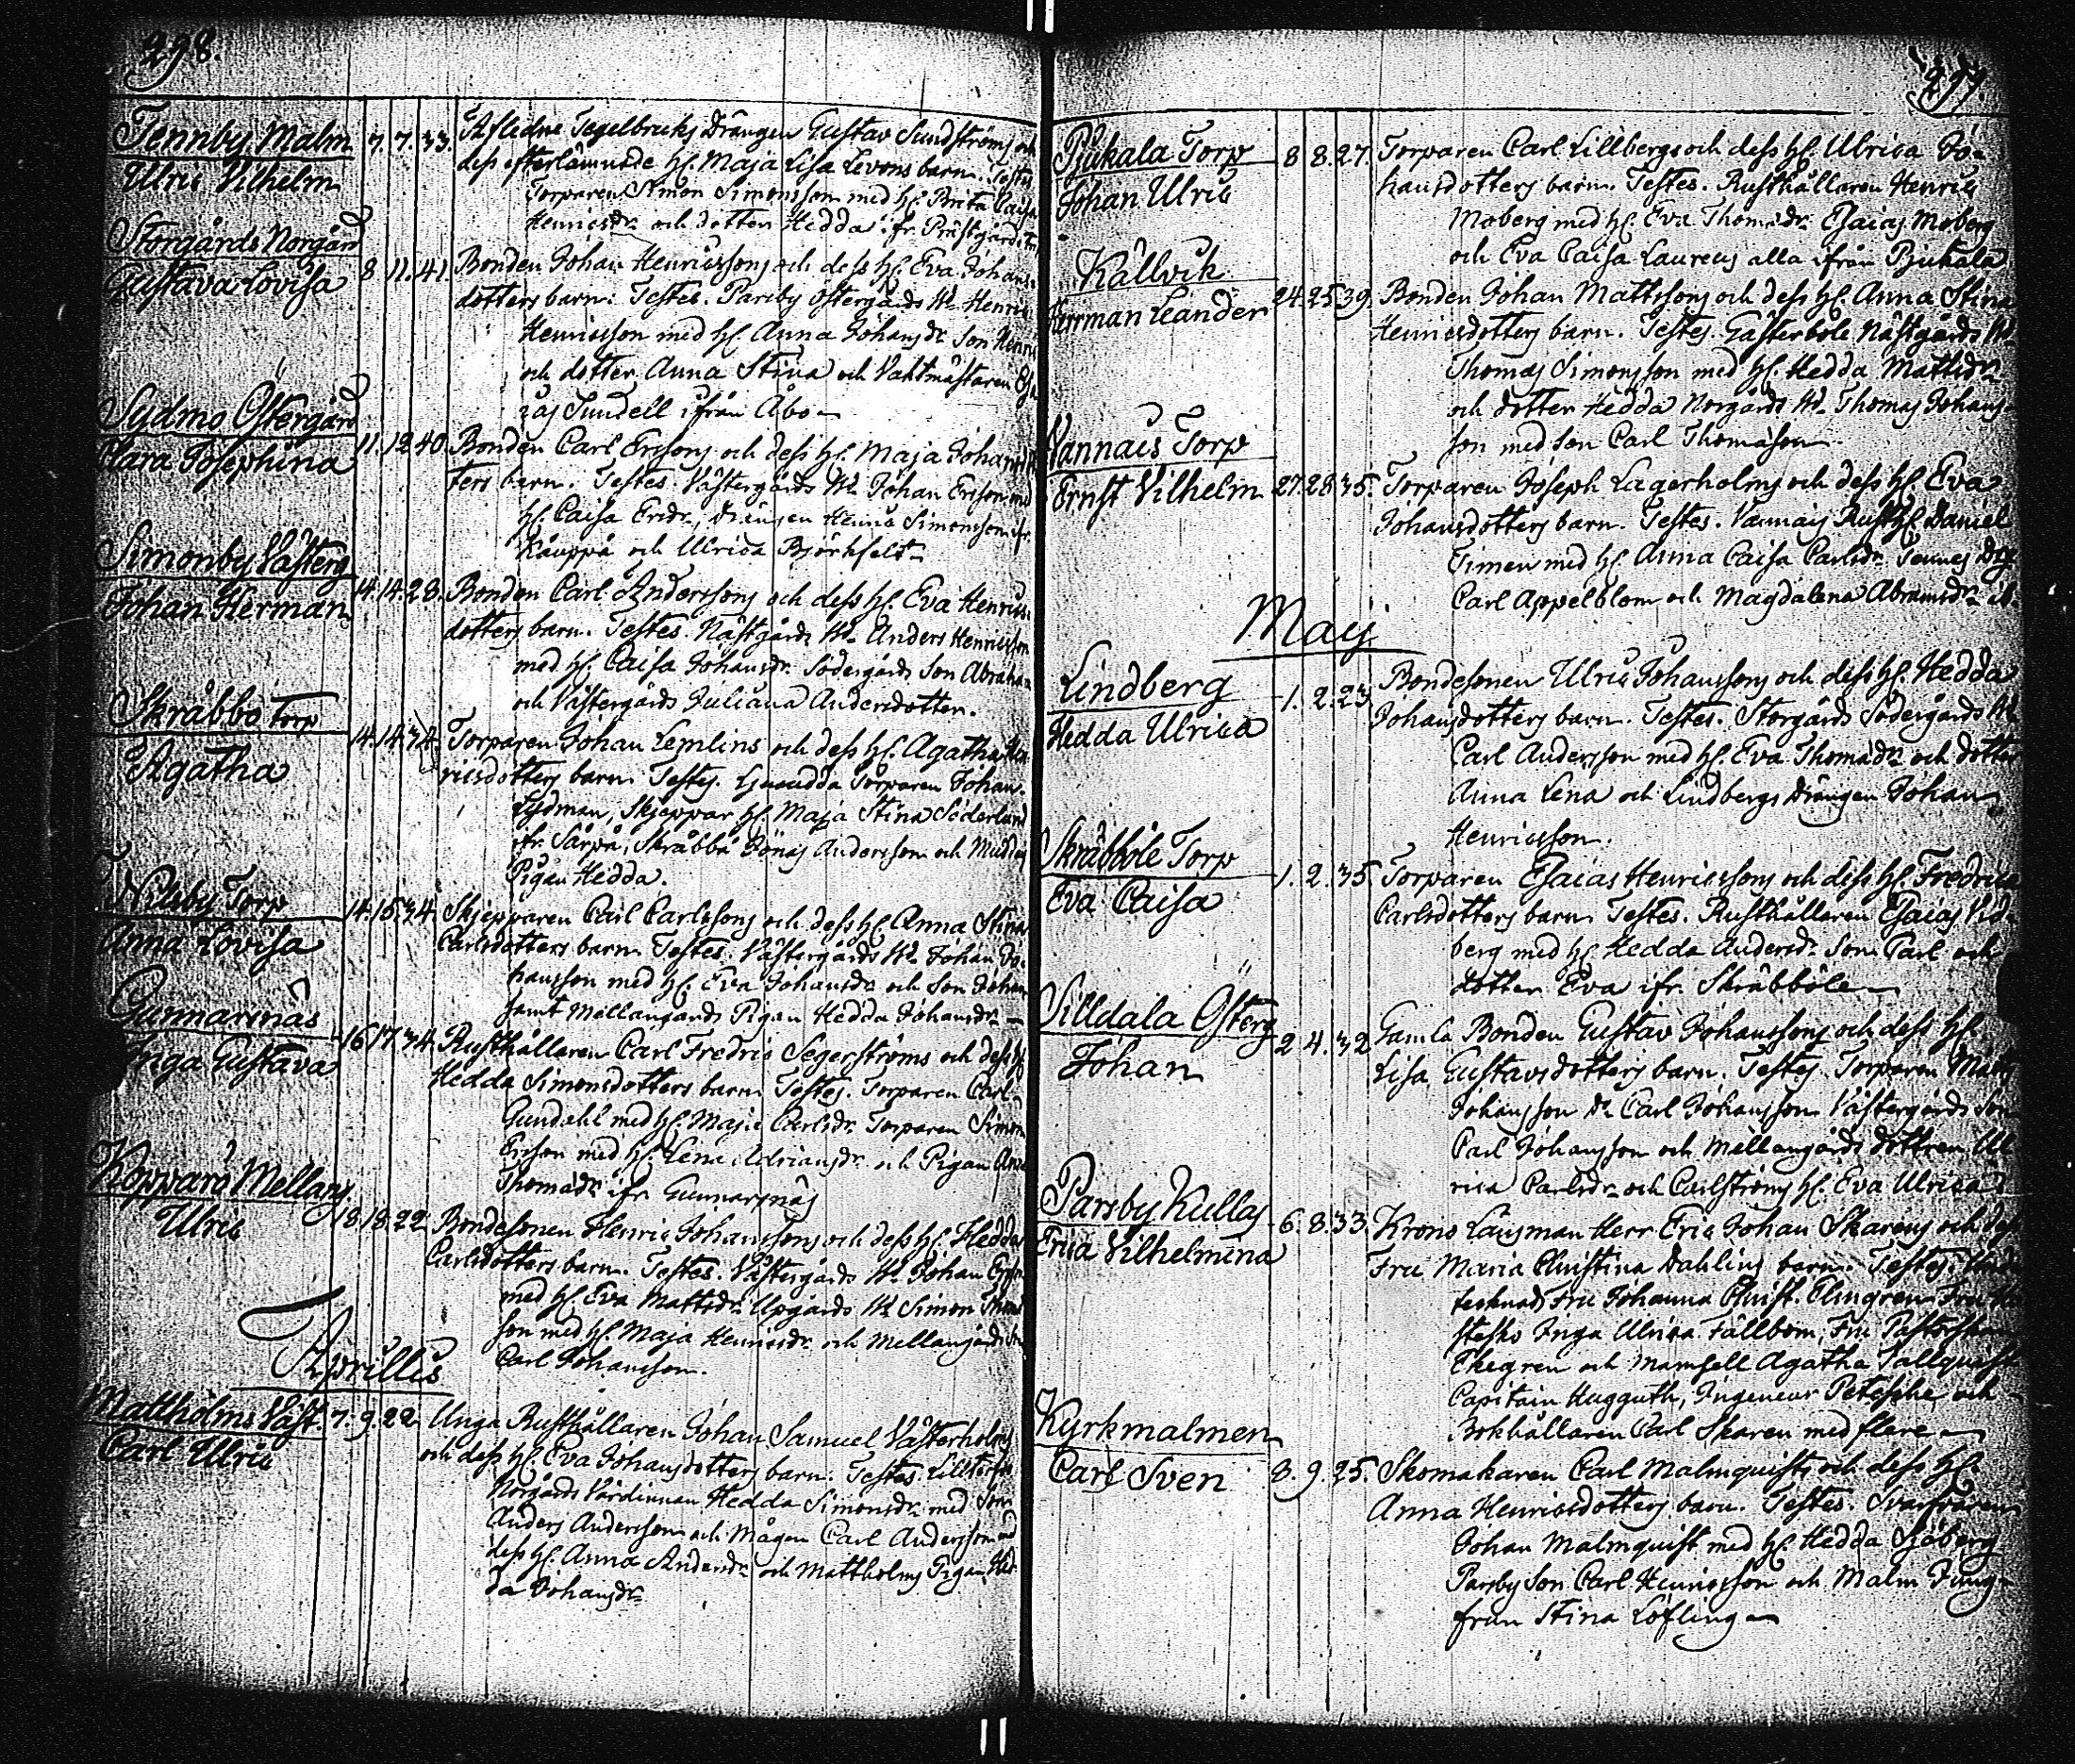 298.
Tennby Malm 7. 7. 33. Afledne Tegelbruks Drängen Gustav Sundströms och
Ulric Vilhelm dess efterlämnade H. Maja Lisa Levons barn. Testes
Torparen Simon Simonsson med H. Brita Caisa
Henricsdr och dotter Hedda ifr. Prästgårds
Storgårds Norgård
Gustava Lovisa 8. 11. 41. Bonden Johan Henricssons och dess H. Eva Johans-
dotters barn. Testes. Parsby Östergårds Hd Henric
Henricsson med H. Anna Johansdr Son Henric
och dotter Anna Stina och Vaktmästaren Esa
ias Sundell ifrån Åbo
Sydmo Östergård
Clara Josephina 11. 12. 40. Bonden Carl Ersons och dess H. Maja Johansdot
ters barn. Testes Västergårds Hd Johan Erson med
H. Caisa Ersdr, Drängen Henric Simonsson ifr.
Kauppå och Ulrica Björkfelt
Simonby Västerg
Johan Herman 14. 14. 28. Bonden Carl Anderssons och dess H. Eva Henrics
dotters barn. Testes. Nästgårds Hd Anders Henricsson
med H. Caisa Johansdr. Södergårds Son Abraham
och Västergårds Juliana Andersdotter.
Skräbbo Torp
Agatha 14. 14. 34. Torparen Johan Lemlins och dess H. Agatha Hen
ricsdotters barn. Testes. Torparen Johan
Lydman, Skjeppar H. Maja Stina Söderlund
ifr. Särpå, Skräbbå Jonas Andersson och Muddais
Pigan Hedda.
Nilsby Torp
Anna Lovisa 14. 15. 34. Skjepparen Carl Carlssons och dess H. Anna Stina
Carlsdotters barn. Testes. Västergårds Hd Johan Jo-
hansson med H. Eva Johansdr och Son Johan
samt Mellangårds Pigan Hedda Johansdr
Gunnarsnäs
Inga Gustava 16. 17. 34. Rusthållaren Carl Fredric Segerströms och dess H.
Hedda Simonsdotters barn. Testes. Torparen Carl
Gundahl med H. Maja Carlsdr. Torparen Simon
Ersson med H. Lena Adriansdr och Pigan Anna
Thomasdr ifr Gunnarsnäs
Kopparö Mellang.
Ulric 18. 18. 22. Bondesonen Henric Johanssons och dess H. Hedda
Carlsdotters barn. Testes. Västergårds Hd Johan Ersson
med H. Eva Mattsdr. Upgårds Hd Simon Thomas
son med H. Maja Henricsdr och Mellangårds Son
Carl Johansson.
Aprillis
Mattholms Väst. 7. 9. 22. Unga Rusthållaren Johan Samuel Västerholms
Carl Ulric och dess H. Eva Johansdotters barn. Testes.
Norgårds Värdinnan Hedda Simonsdr med Son
Anders Andersson och Mågen Carl Andersson med
dess H. Anna Andersdr och Mattholms Pigan Hed
da Johansdr
Pjukala Torp 8. 8. 27. Torparen Carl Lillbergs och dess H. Ulrica Jo-
Johan Ulric hansdotters barn. Testes. Rusthållaren Henric
Moberg med H. Eva Thomasdr Esaias Moberg
och Eva Caisa Laureus alla ifrån Pjukala
Källvik
Herrman Leander 24. 25. 39. Bonden Johan Mattssons och dess H. Anna Stina
Henricsdotters barn. Testes. Gästerbole Nästgårds Hd
Thomas Simonsson med H. Hedda Mattsdr
och dotter Hedda Norgårds Hd Thomas Johans-
son med Son Carl Thomasson
Vannais Torp
Ernst Vilhelm 27. 28. 35. Torparen Joseph Lagerholms och dess H. Eva
Johansdotters barn. Testes. Vannais RustH. Daniel
Simen med H. Anna Caisa Carlsdr Tennes Drg
Carl Appelblom och Magdalena Abramsdr
Maij
Lindberg 1. 2. 23. Bondesonen Ulric Johanssons och dess H. Hedda
Hedda Ulrica Johansdotters barn. Testes. Storgårds Södergårds Hd
Carl Andersson med H. Eva Thomasdr och dotter
Anna Lena och Lindbergs Drängen Johan
Henricsson.
Skräbböle Torp 1. 2. 35. Torparen Esaias Henricssons och dess H. Fredrica
Eva Caisa Carlsdotters barn. Testes. Rusthållaren Esaias Vid
berg med H. Hedda Andersdr Son Carl och
dotter Eva ifr. Skräbböle
Silldala Österg
Johan 2. 4. 32. Gamla Bonden Gustav Johanssons och dess H.
Lisa Gustavsdotters barn. Testes. Torparen Matts
Johansson Do Carl Johansson Västergårds Son
Carl Johansson och Mellangårds dottren Ul
rica Carlsdr och Carlströms H. Eva Ulrica
Parsby Kullas 6. 8. 33. Krono Länsman Herr Eric Johan Skarens och dess
Erica Vilhelmina Fru Maria Christina Dahlins barn. Testes: Under
tecknads Fru Johanna Christ. Elmgren Fru
Inga Ulrica Fällbom, Fru Pastorskan
Ekegren och Mamsell Agatha Tallquist
Capitain Hugguth, Ingeneur Petesche och
Bokhållaren Carl Skaren med flere
Kyrkmalmen
Carl Sven 8. 9. 25. Skomakaren Carl Malmquists och dess H.
Anna Henricsdotters barn. Testes. Svarfvaren
Johan Malmquist med H. Hedda Sjöberg
Parsby Son Carl Henricsson och Malm Jung-
frun Stina Löfling